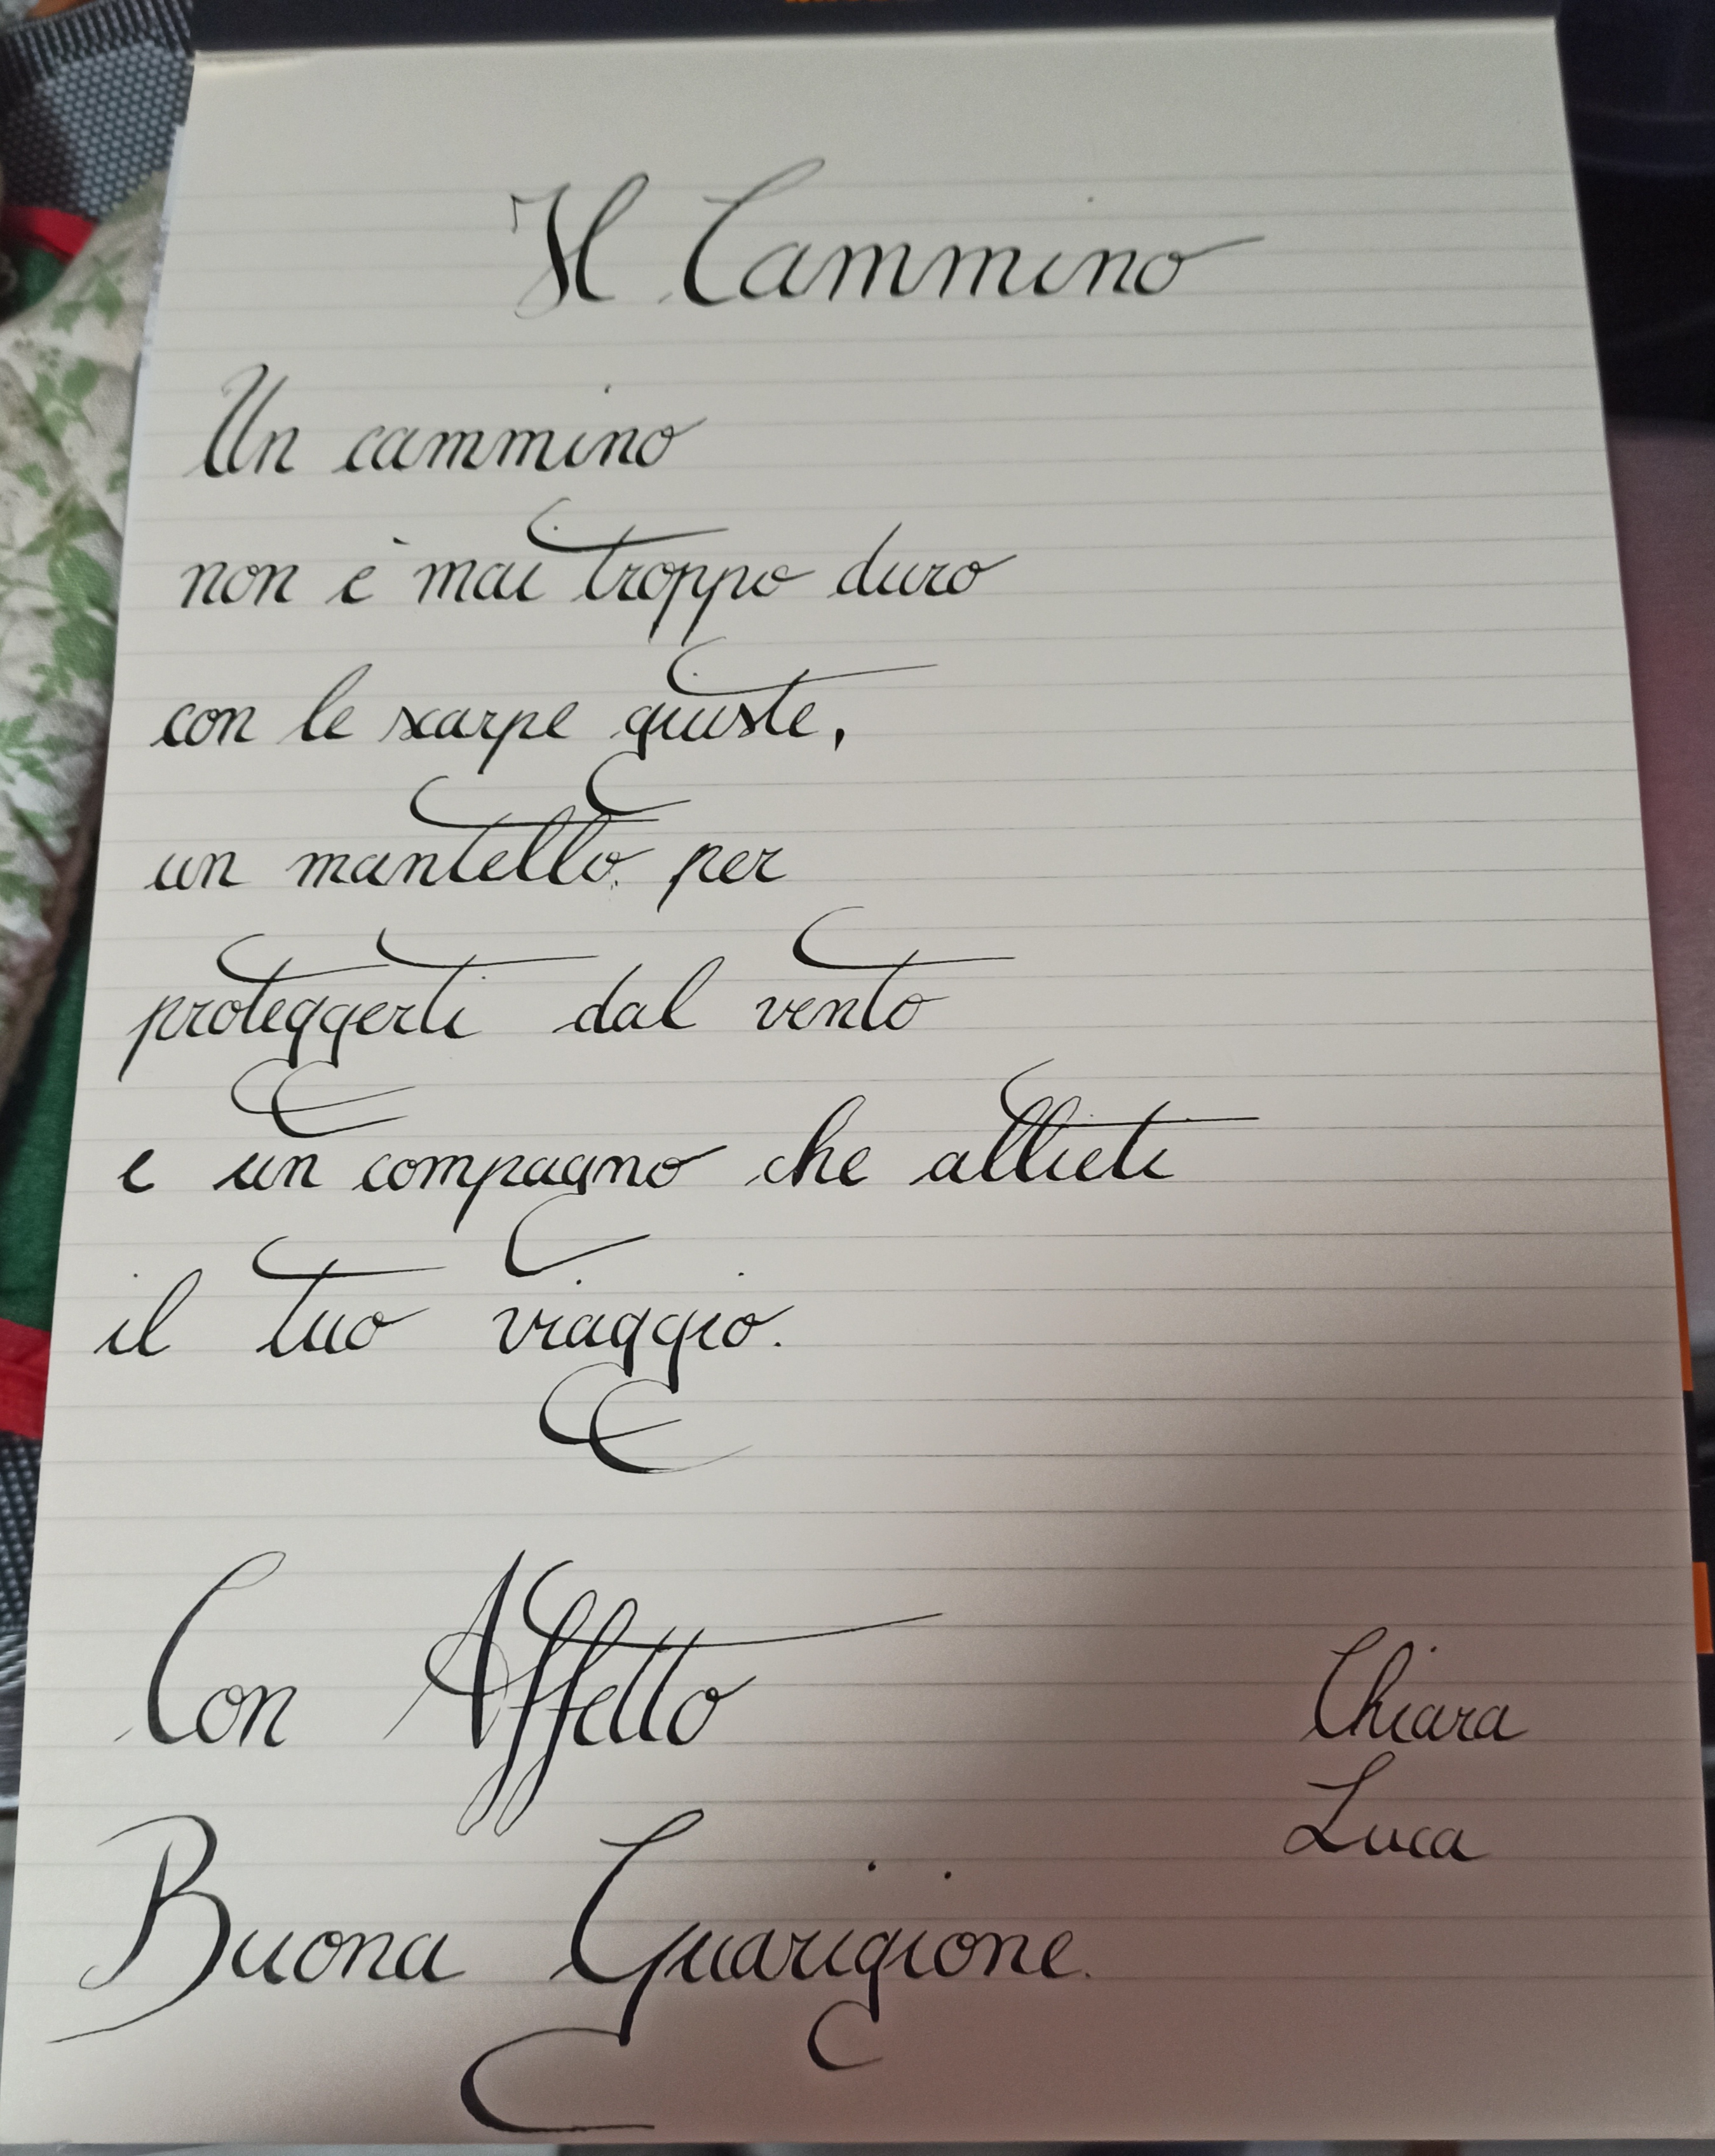 Il Cammino
Un cammino
non è mai troppo duro
con le scarpe giuste,
un mantello per
proteggerti dal vento
e un compagno che allieti
il tuo viaggio.
Con Affetto
Chiara
Luca
Buona Guarigione.